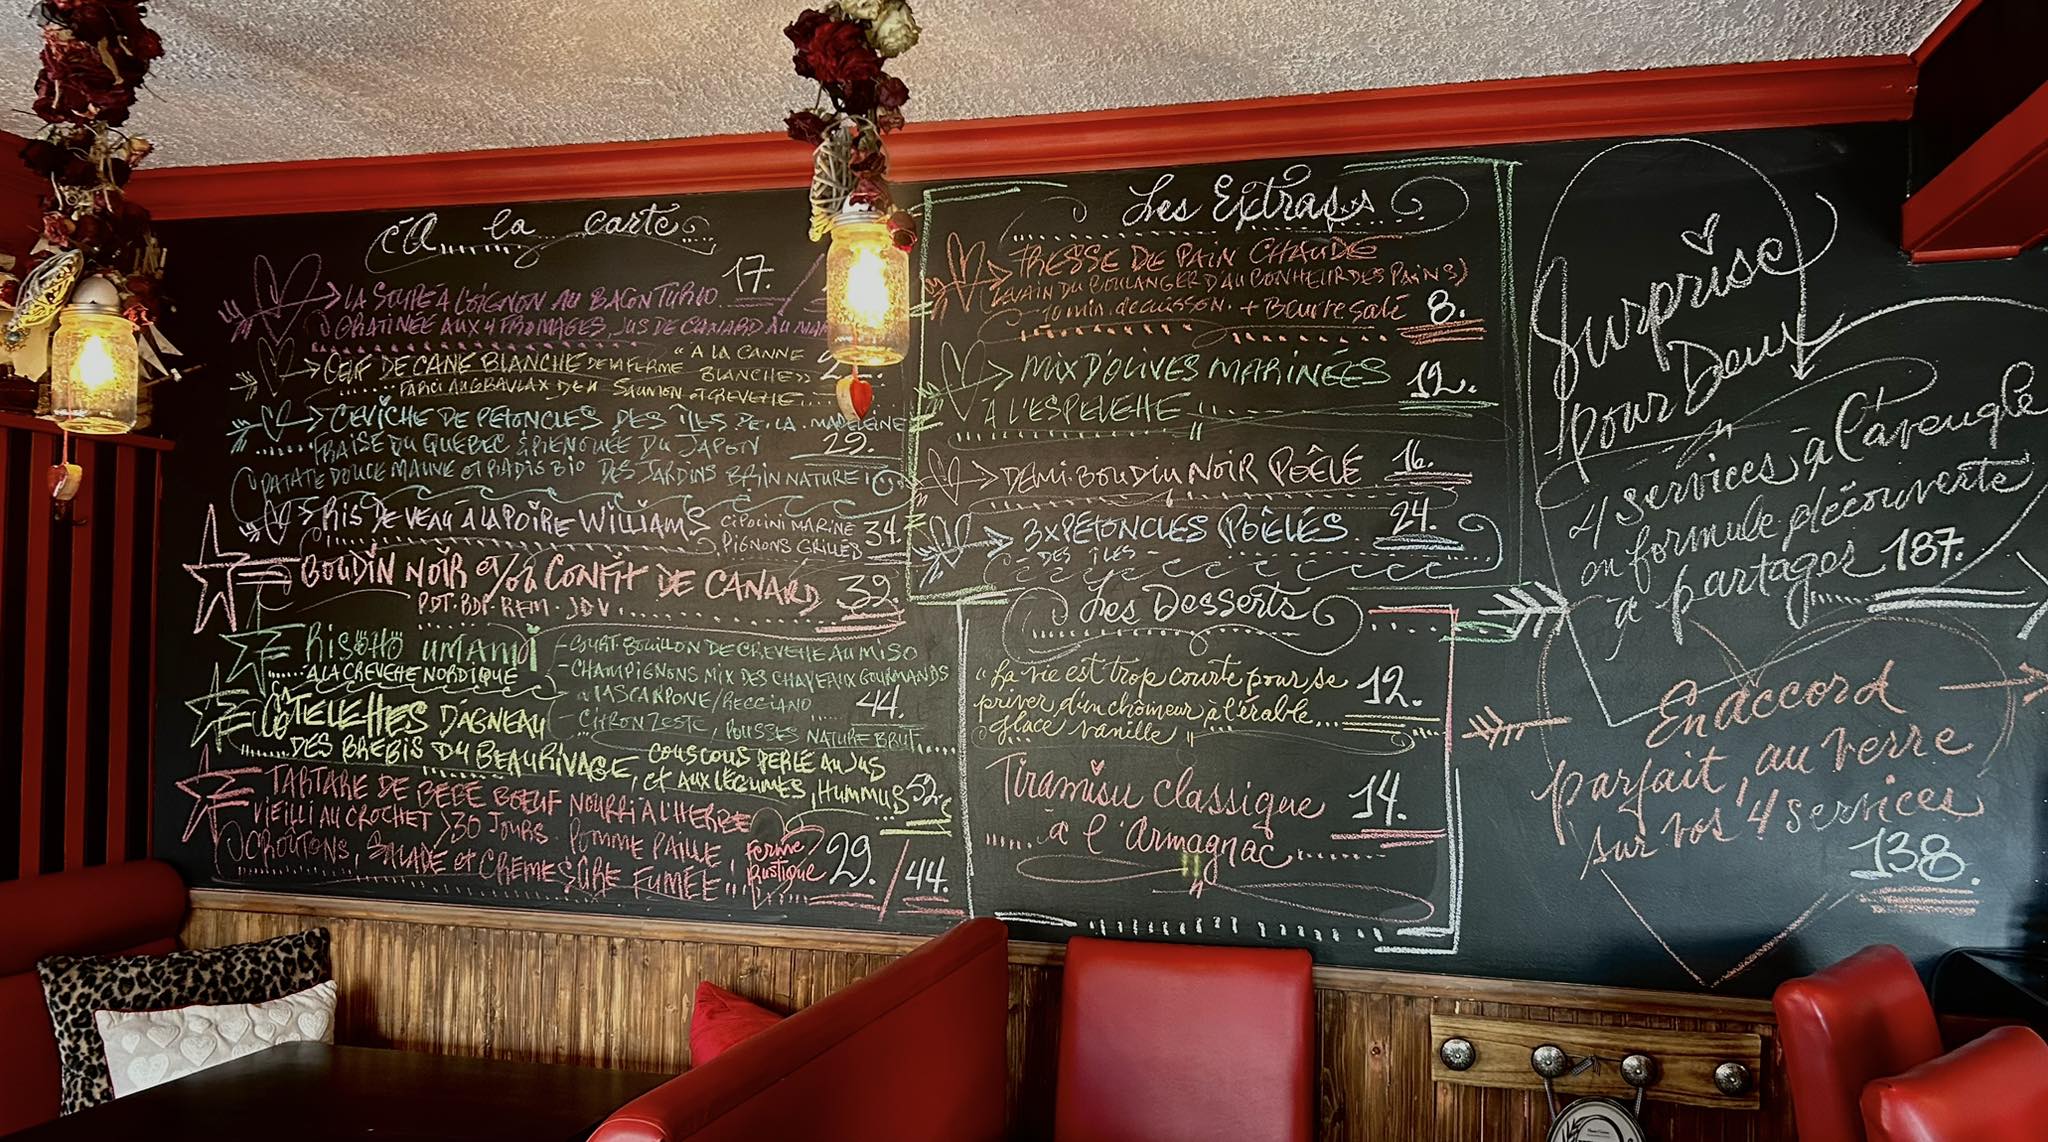 à la carte
LA SOUPE À L'OIGNON AU BACON TURLO 17.
GRATINÉE AUX 4 FROMAGES, JUS DE CANARD AU
OEUF DE CANE BLANCHE DE LA FERME "À LA CANNE
FARCI AU GRAVLAX DE SAUMON et CREVETTE... BLANCHE»
CEVICHE DE PÉTONCLES DES ÎLES DE LA MADELEINE
FRAISE DU QUÉBEC & RENOUÉE DU JAPON 29.
PATATE DOUCE MAUVE et RADIS BIO DES JARDINS BRIN NATURE!
RIS DE VEAU À LA POIRE WILLIAMS CIPOLINI MARINÉ 34.
PIGNONS GRILLÉS
BOUDIN NOIR et/ou CONFIT DE CANARD 39.
PDT. BDP. REM. JDV.
RISOTTO UMAMI - COURT-BOUILLON DE CREVETTE AU MISO
À LA CREVETTE NORDIQUE - CHAMPIGNONS MIX DES CHAVEAUX GOURMANDS
- MASCARPONE/REGGIANO 44.
- CITRON ZESTE, POUSSES NATURE BRUT
CÔTELETTES D'AGNEAU
DES BREBIS DU BEAURIVAGE, COUSCOUS PERLÉ AU JUS
et AUX LÉGUMES, HUMMUS 52.
TARTARE DE BÉBÉ BOEUF NOURRI À L'HERBE
VIEILLI AU CROCHET >30 JOURS. POMME PAILLE, Ferme
CROÛTONS, SALADE et CRÈME SÛRE FUMÉE! Rustique 29. / 44.
Les Extras
TRESSE DE PAIN CHAUDE
(LEVAIN DU BOULANGER D'AU BONHEUR DES PAINS)
10 min. de cuisson. + Beurre salé 8.
MIX D'OLIVES MARINÉES 12.
À L'ESPELETTE
DEMI-BOUDIN NOIR POÊLÉ 16.
3X PÉTONCLES POÊLÉS 24.
DES ÎLES
Les Desserts
"La vie est trop courte pour se 12.
priver d'un chômeur à l'érable...
glace vanille"
Tiramisu classique 14.
à l'Armagnac
Surprise
pour Deux
4 services à l'aveugle
en formule découverte
à partager 187.
En accord
parfait, au verre
sur vos 4 services
138.